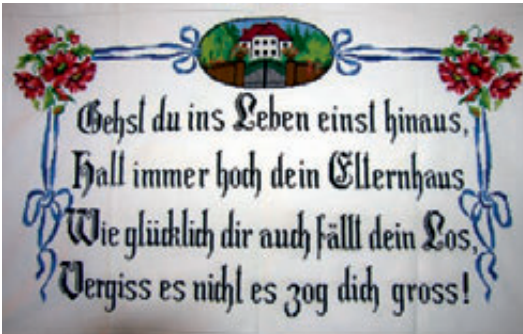 Gehst du ins Leben einst hinaus,
Halt immer hoch dein Elternhaus
Wie glücklich dir auch fällt dein Los,
Vergiss es nicht es zog dich gross!